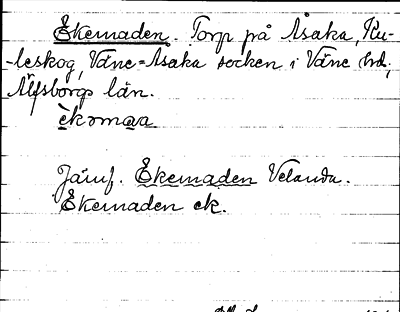 Ekemaden. Torp på Åsaka, Ku-
-leskog, Väne-Åsaka socken i Väne hd,
Älfsborgs län.
èkomava
Jämf. Ekemaden Velanda.
Ekemaden ek.